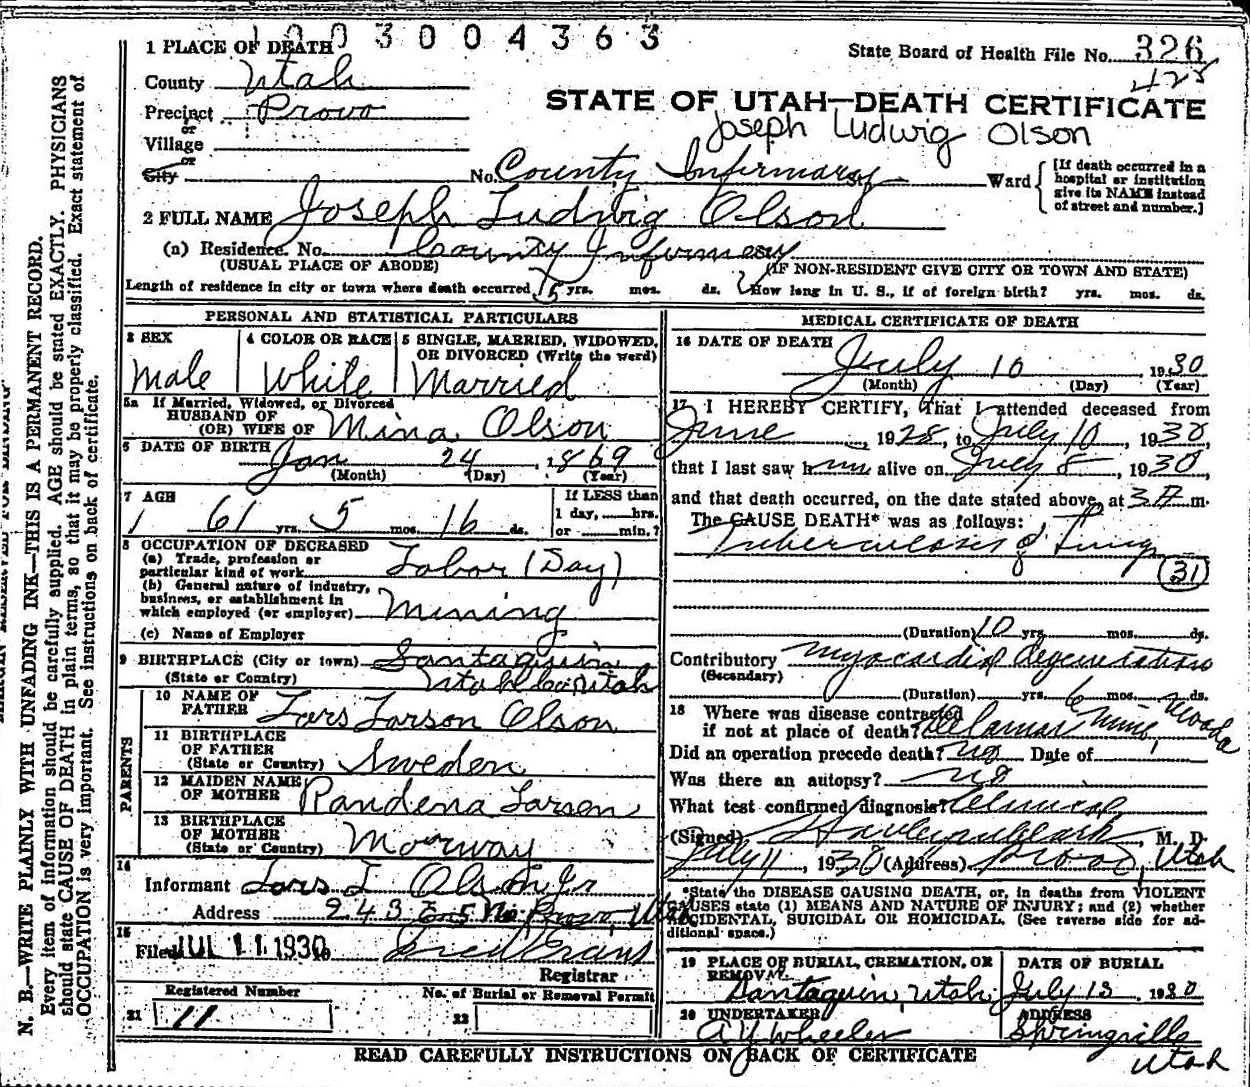 1003004363
1 PLACE OF DEATH
State Board of Health File No. 326
428
County Utah
Precinct Provo
or
Village
or
City
STATE OF UTAH—DEATH CERTIFICATE
Joseph Ludwig Olson
No. County Infirmary St. Ward
[If death occurred in a hospital or institution give its NAME instead of street and number.]
2 FULL NAME Joseph Ludwig Olson
(a) Residence. No. County Infirmary
(USUAL PLACE OF ABODE)
(IF NON-RESIDENT GIVE CITY OR TOWN AND STATE)
Length of residence in city or town where death occurred yrs. mos. ds. How long in U. S., if of foreign birth? yrs. mos. ds.
PERSONAL AND STATISTICAL PARTICULARS
3 SEX
Male
4 COLOR OR RACE
White
5 SINGLE, MARRIED, WIDOWED, OR DIVORCED (Write the word)
Married
5a If Married, Widowed, or Divorced
HUSBAND OF
(OR) WIFE OF Mina Olson
6 DATE OF BIRTH Jan 24 1869
(Month) (Day) (Year)
7 AGE
61 yrs. 5 mos. 16 ds.
If LESS than
1 day, hrs.
or min.?
8 OCCUPATION OF DECEASED
(a) Trade, profession or
particular kind of work Labor (Day)
(b) General nature of industry,
business, or establishment in
which employed (or employer) Mining
(c) Name of Employer
9 BIRTHPLACE (City or town) Santaquin
(State or Country) Utah Co. Utah
PARENTS
10 NAME OF
FATHER Lars Larson Olson
11 BIRTHPLACE
OF FATHER
(State or Country) Sweden
12 MAIDEN NAME
OF MOTHER Randena Larsen
13 BIRTHPLACE
OF MOTHER
(State or Country) Norway
14
Informant Lars L Olson Jr
Address 243 E 5 No. Provo, Utah
15
Filed JUL 11 1930 Fred Evans
Registrar
Registered Number
21 11
No. of Burial or Removal Permit
22
MEDICAL CERTIFICATE OF DEATH
16 DATE OF DEATH
July 10 1930
(Month) (Day) (Year)
17 I HEREBY CERTIFY, That I attended deceased from
June, 1928, to July 10, 1930,
that I last saw him alive on July 8, 1930
and that death occurred, on the date stated above, at 3 A m.
The CAUSE DEATH* was as follows:
Tuberculosis of Lung
(31)
(Duration) 10 yrs. mos. ds.
Contributory Myocardial degeneration
(Secondary)
(Duration) yrs. 6 mos. ds.
18 Where was disease contracted
if not at place of death? Delamar Mine, Nevada
Did an operation precede death? no Date of
Was there an autopsy? no
What test confirmed diagnosis? Clinical
(Signed) M. D.
July 11, 1930 (Address) Provo, Utah
*State the DISEASE CAUSING DEATH, or, in deaths from VIOLENT
CAUSES state (1) MEANS AND NATURE OF INJURY; and (2) whether
ACCIDENTAL, SUICIDAL OR HOMICIDAL. (See reverse side for additional space.)
19 PLACE OF BURIAL, CREMATION, OR REMOVAL
Santaquin, Utah
DATE OF BURIAL
July 13 1930
20 UNDERTAKER
A Y Wheeler
ADDRESS
Springville
Utah
READ CAREFULLY INSTRUCTIONS ON BACK OF CERTIFICATE
N. B.—WRITE PLAINLY WITH UNFADING INK—THIS IS A PERMANENT RECORD.
Every item of information should be carefully supplied. AGE should be stated EXACTLY. PHYSICIANS
should state CAUSE OF DEATH in plain terms, so that it may be properly classified. Exact statement of
OCCUPATION is very important. See instructions on back of certificate.